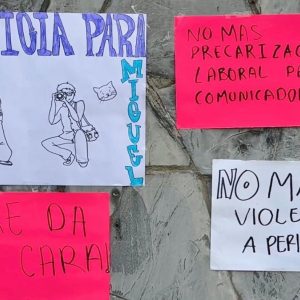 ICIA PARA
MIGUEL
NO MAS
PRECARIZAC
LABORAL
COMUNICADO
NO MA
VIOLE
A PERI
E DA
CARA!